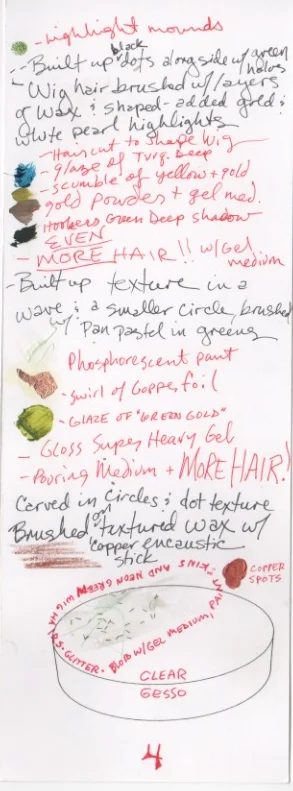 - highlight mounds
- Built up black dots alongside w/ green halves
- Wig hair brushed w/ layers
of wax & shaped - added gold &
white pearl highlights
- Haircut to Shape Wig
- glaze of Turq. Deep
- scumble of yellow + gold
gold powders + gel med.
Hookers Green Deep shadow
EVEN
- MORE HAIR!! w/Gel medium
- Built up texture in a
wave & a smaller circle, brushed
w/ Pan pastel in greens
Phosphorescent paint
- swirl of Copper foil
- GLAZE OF "GREEN GOLD"
- Gloss Super Heavy Gel
- Pouring Medium + MORE HAIR!
Carved in circles & dot texture
Brushed on textured wax w/
copper encaustic
stick
COPPER
SPOTS
GLITTER. BLOB W/ GEL MEDIUM,
AND NEON GREEN WIG HA
CLEAR
GESSO
4